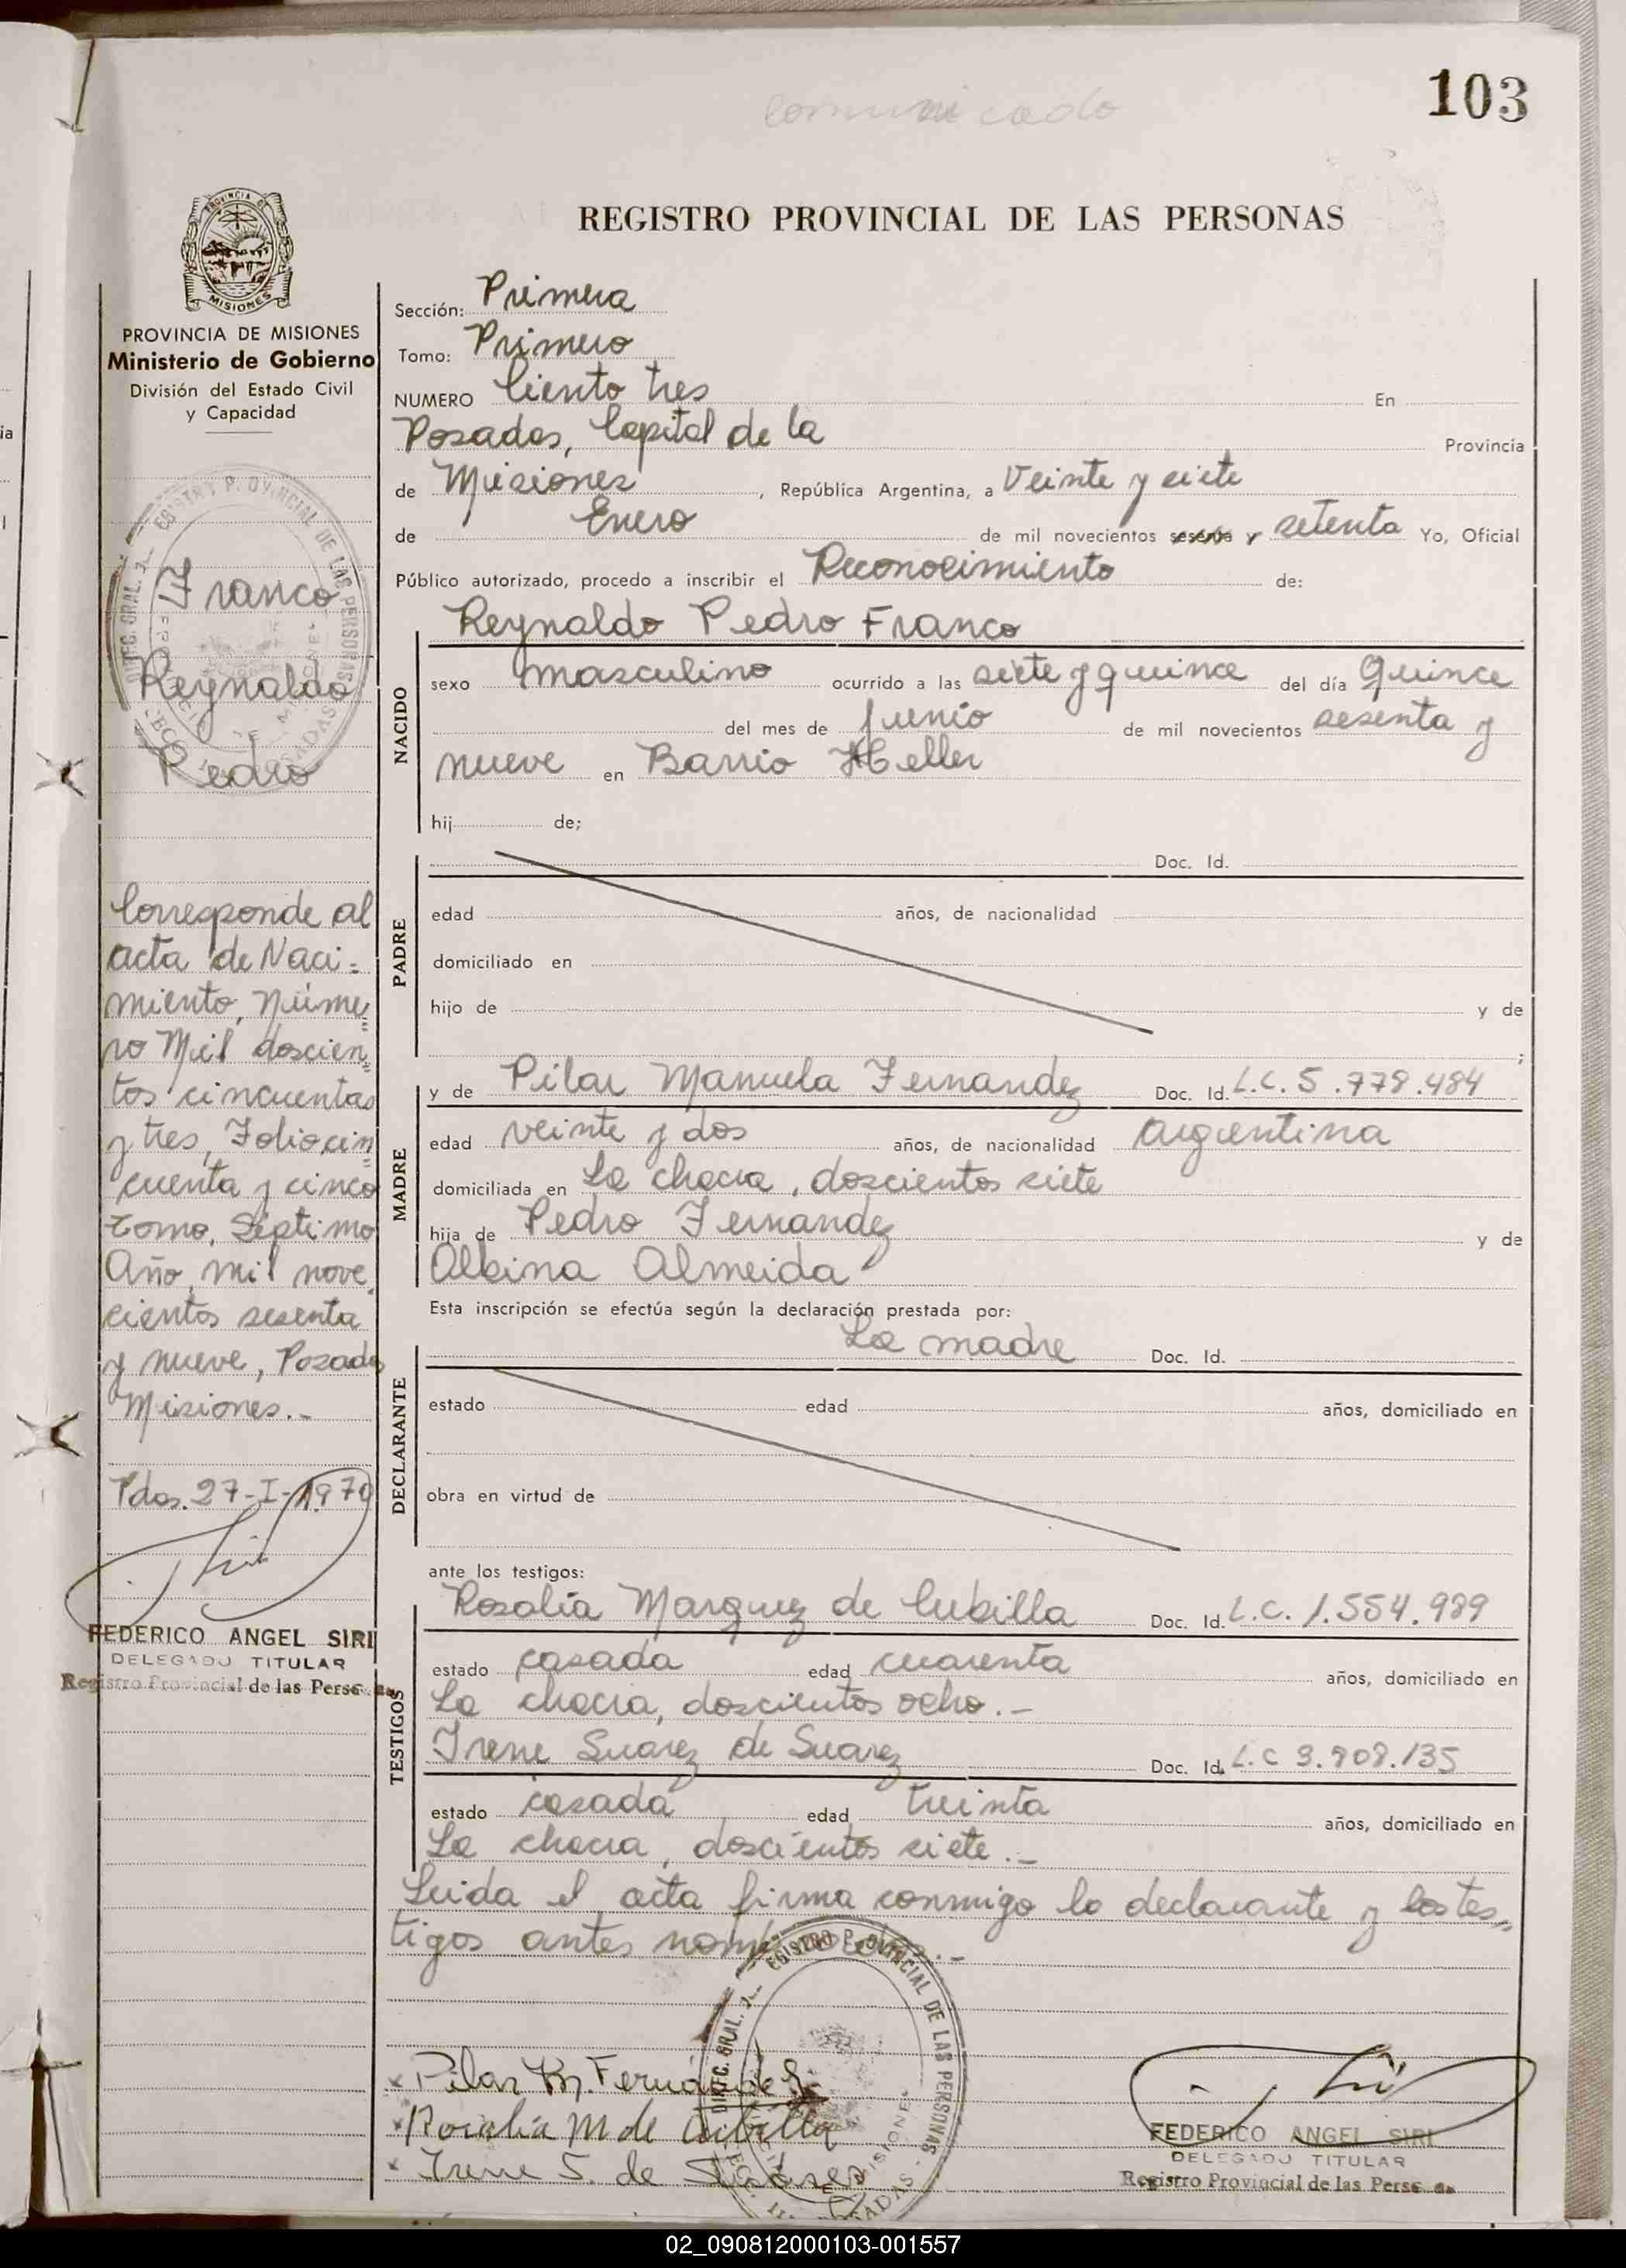 103
comunicado
REGISTRO PROVINCIAL DE LAS PERSONAS
PROVINCIA DE MISIONES
Ministerio de Gobierno
División del Estado Civil
y Capacidad
Franco
Reynaldo
Pedro
Corresponde al
acta de Naci-
miento, Núme
ro Mil doscien
tos cincuenta
y tres, Folio cin
cuenta y cinco
Tomo, Séptimo
Año, mil nove
cientos sesenta
y nueve, Posadas
Misiones.-
Pdas. 27-I-1970
FEDERICO ANGEL SIRI
DELEGADO TITULAR
Registro Provincial de las Personas
Sección: Primera
Tomo: Primero
NUMERO Ciento tres En
Posadas, Capital de la Provincia
de Misiones, República Argentina, a Veinte y siete
de Enero de mil novecientos sesenta y setenta Yo, Oficial
Público autorizado, procedo a inscribir el Reconocimiento de:
NACIDO
Reynaldo Pedro Franco
sexo masculino ocurrido a las siete y quince del día Quince
del mes de Junio de mil novecientos sesenta y
nueve en Barrio Heller
hij de;
PADRE
Doc. Id.
edad años, de nacionalidad
domiciliado en
hijo de y de
;
MADRE
y de Pilar Manuela Fernandez Doc. Id. L.C. 5.779.484
edad veinte y dos años, de nacionalidad argentina
domiciliada en La chacra, doscientos siete
hija de Pedro Fernandez y de
Albina Almeida
Esta inscripción se efectúa según la declaración prestada por:
DECLARANTE
La madre Doc. Id.
estado edad años, domiciliado en
obra en virtud de
ante los testigos:
TESTIGOS
Rosalía Marquez de Cubilla Doc. Id. L.C. 1.554.989
estado casada edad cuarenta años, domiciliado en
La chacra, doscientos ocho.-
Irene Suarez de Suarez Doc. Id. L.C 3.908.135
estado casada edad treinta años, domiciliado en
La chacra, doscientos siete.-
Leida el acta firma conmigo la declarante y los tes-
tigos antes
x Pilar M. Fernández
x Rosalía M de Cubilla
x Irene S. de Suárez
FEDERICO ANGEL SIRI
DELEGADO TITULAR
Registro Provincial de las Personas
02_090812000103-001557